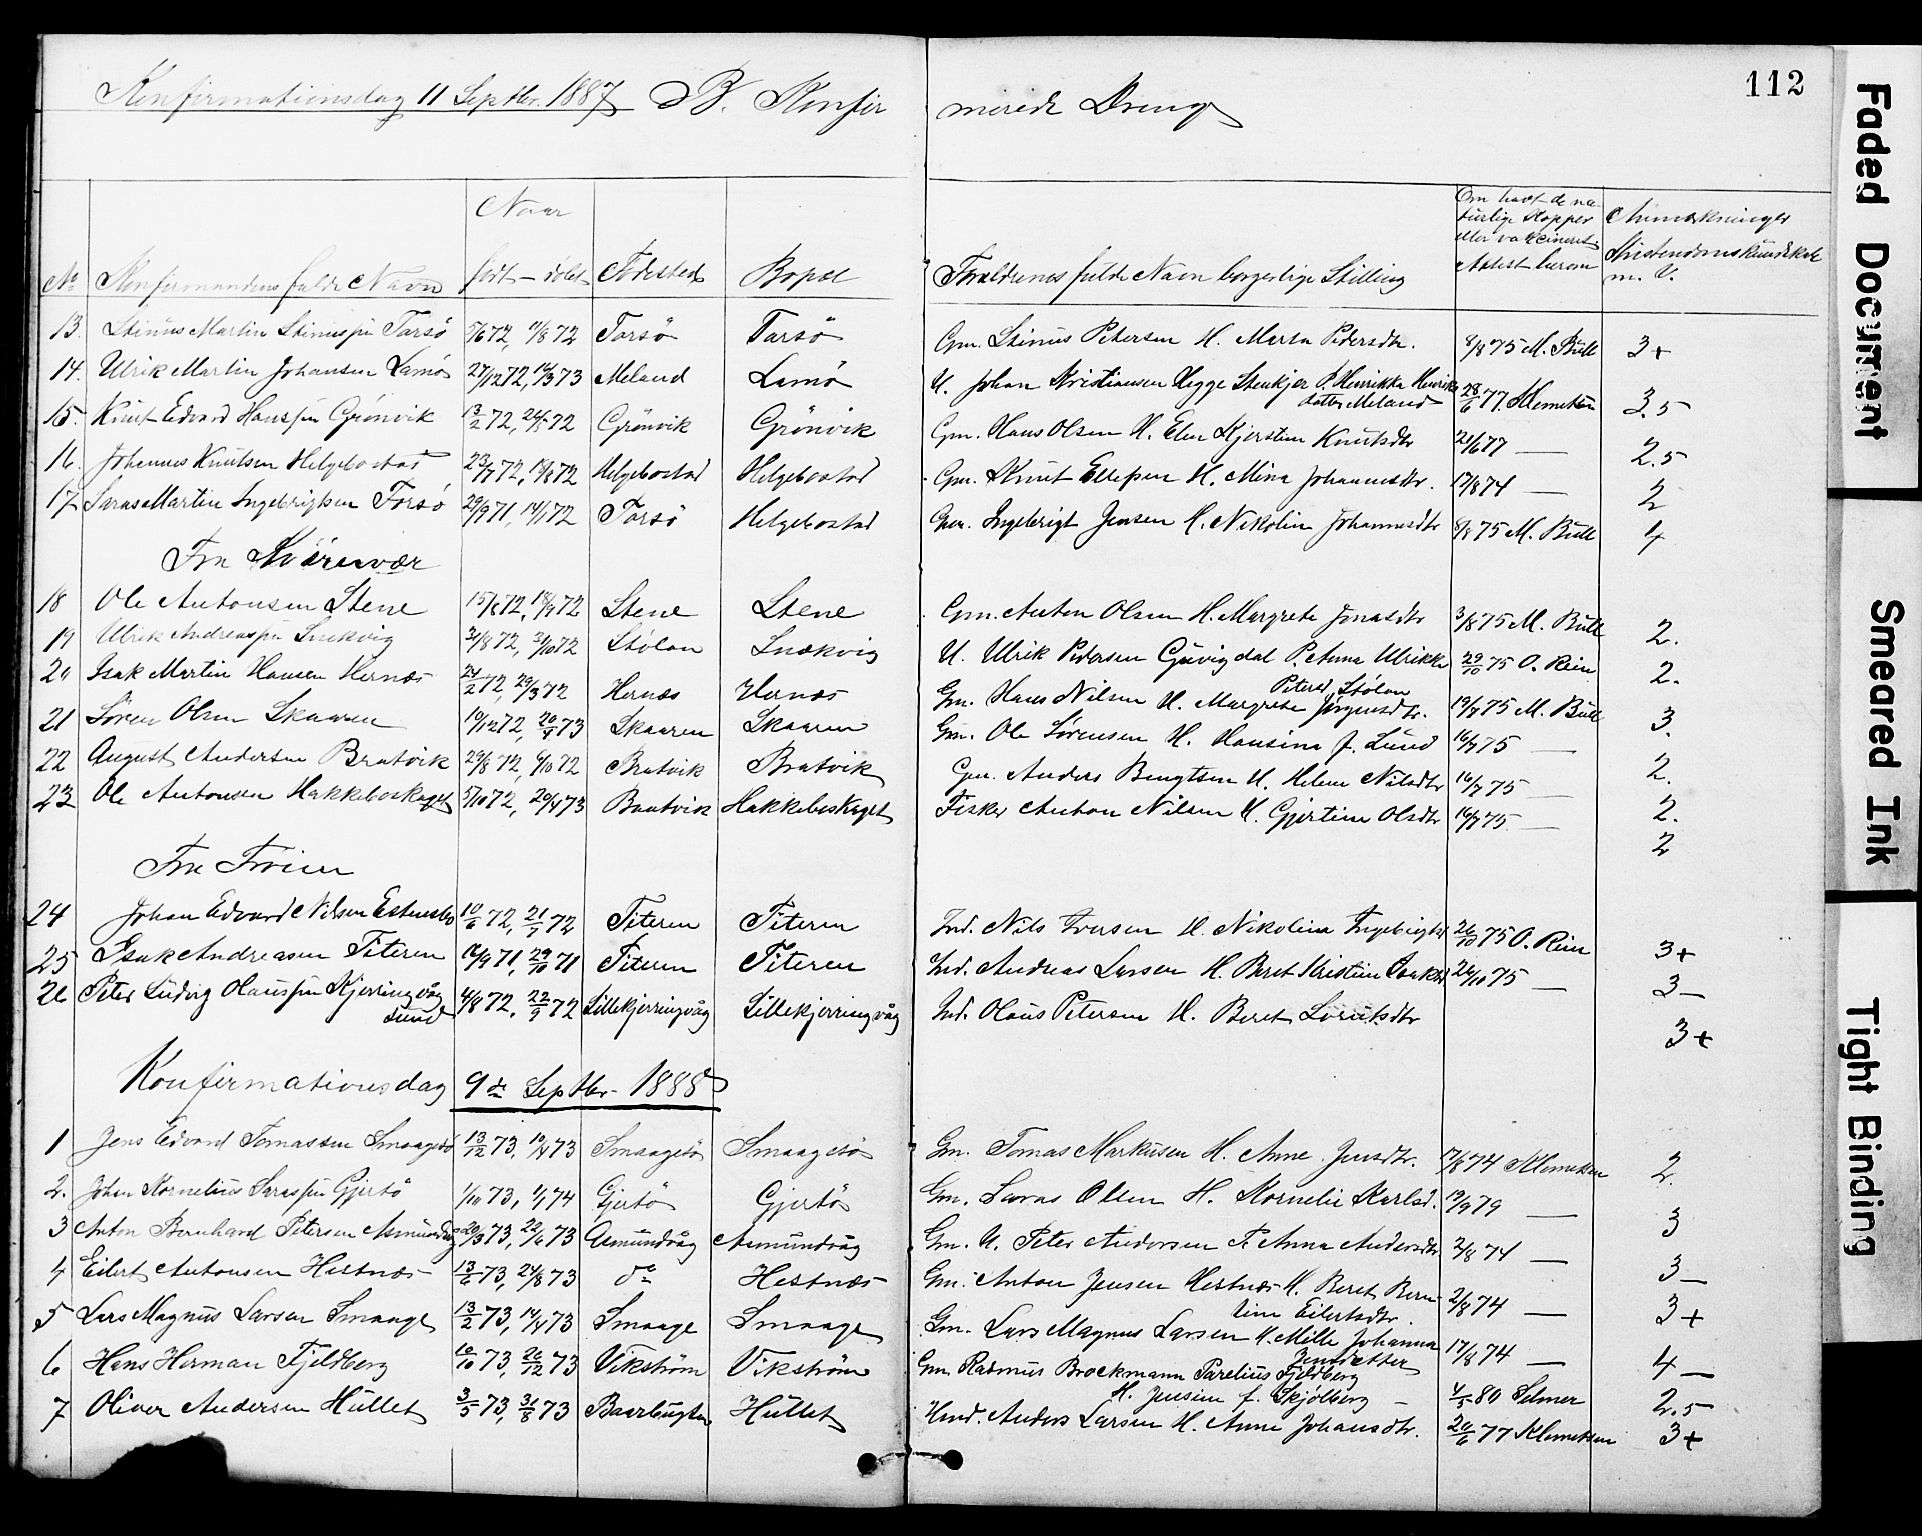 112
Konfirmationsdag 11 Septbr. 1887 B. Konfirmerede Drenge
Naar
No Konfirmandens fulde Navn født – døbt Fødested Bopæl Forældrenes fulde Navn borgerlige Stilling Om havt de naturlige Kopper eller vakcineret Attest herom Anmærkninger Kristendomskundskab m. V.
13. Stinus Martin Stinussen Tarsø 5/6 72, 11/8 72 Tarsø Tarsø Gm. Stinus Petersen H. Marta Pedersdtr. 8/8 75 M. Bull 3+
14. Ulrik Martin Johansen Lamø 27/12 72, 16/3 73 Meland Lamø U. Johan Kristiansen Hegge Stenkjer P. Henrikka Henriks datter Meland 28/6 77. Klemetsen 3.5
15. Knut Edvard Hanssen Grønvik 13/2 72, 24/5 72 Grønvik Grønvik Gm. Hans Olsen H. Elen Kjerstine Knutsdtr 21/6 77 — 2.5
16. Johannes Knutsen Helgebostad 23/7 72, 18/8 72 Helgebostad Helgebostad Gm. Knut Ellefsen H. Mina Johannesdtr. 17/8 74 — 2
17 Saras Martin Ingebrigtsen Forsø 29/9 71, 14/1 72 Forsø Helgebostad Gm. Ingebrigt Jensen H. Nikolin Johannesdtr 8/8 75 M. Bull 4
Fra Kvörnvær
18 Ole Antonsen Stene 15/8 72, 18/9 72 Stene Stene Gm. Anton Olsen H. Margrete Jonasdtr 3/8 75 M. Bull 2.
19 Ulrik Andreassen Snekvig 31/8 72, 3/10 72 Stølan Snekvig U. Ulrik Pedersen Gjevigdal P. Anna Ulrikke Petersd. Stølan 29/10 75 O. Rein 2.
20 Isak Martin Hansen Hernæs 24/2 72, 29/3 72 Hernæs Hernæs Gm. Hans Nilsen H. Margrete Jørgensdtr. 19/7 75 M. Bull 3.
21 Søren Olsen Skaaren 19/12 72, 20/4 73 Skaaren Skaaren Gm. Ole Sørensen H. Hansina f. Lund 16/7 75 — 2.
22 August Andersen Bratvik 29/8 72, 6/10 72 Bratvik Bratvik Gm. Anders Bengtsen H. Helene Nilsdtr 16/7 75 — 2.
23 Ole Antonsen Hakkeboskaget 5/10 72, 20/4 73 Bratvik Hakkeboskaget Fisker Anton Nilsen H. Gjertine Olsdtr 16/7 75 — 2
Fra Froien
24 Johan Edvard Nilsen Estensbo 10/6 72, 21/7 72 Titeren Titeren Ind. Nils Iversen H. Nikolina Ingebrigtsd 26/10 75 O. Rein 3+
25 Isak Andreasen Titeren 16/9 71, 29/10 71 Titeren Titeren Ind. Andreas Larsen H. Beret Kristine Isaksd 26/10 75 — 3–
26 Peter Ludvig Olaussen Kjerringvåg sund 4/8 72, 22/9 72 Lillekjerringvåg Lillekjerringvåg Ind. Olaus Petersen H. Beret Lorntsdtr 3+
Konfirmationsdag 9de Septbr. 1888
1 Jens Edvard Tomassen Smaagesø 13/12 73, 10/4 73 Smaagesø Smaagesø Gm. Tomas Markusen H. Anne Jensdtr. 17/8 74 Klemetsen 2.
2. Johan Kornelius Sarassen Gjertø 1/10 73, 1/1 74 Gjertø Gjertø Gm. Saras Olsen H. Kornelie Karlsd. 19/9 79 — 3
3 Anton Bernhard Petersen Asmundvåg 20/3 73, 22/6 73 Asmundvåg Asmundvåg Gm. U. Peter Andersen P. Anna Andersdtr 2/8 74 — 3–
4 Eilert Antonsen Hestnæs 13/6 73, 24/8 73 do Hestnæs Gm. Anton Jensen Hestnæs H. Beret Berntine Eilertsdtr. 2/8 74 — 3+
5 Lars Magnus Larsen Smaage 13/2 73, 14/4 73 Smaage Smaage Gm. Lars Magnus Larsen H. Mille Johanna Jensdatter 17/8 74 — 4–
6 Hans Herman Fjeldberg 10/10 73, 26/12 73 Vikstrøm Vikstrøm Gm. Rasmus Brockmann Parelius Fjeldberg H. Jensine f. Skjølberg – 4/5 80 Selmer 2.5
7 Oliver Andersen Hullet 3/5 73, 31/8 73 Baarbugten Hullet Husd. Anders Larsen H. Anne Johansdtr. 20/6 77 Klemetsen 3+
Faded Document
Smeared Ink
Tight Binding